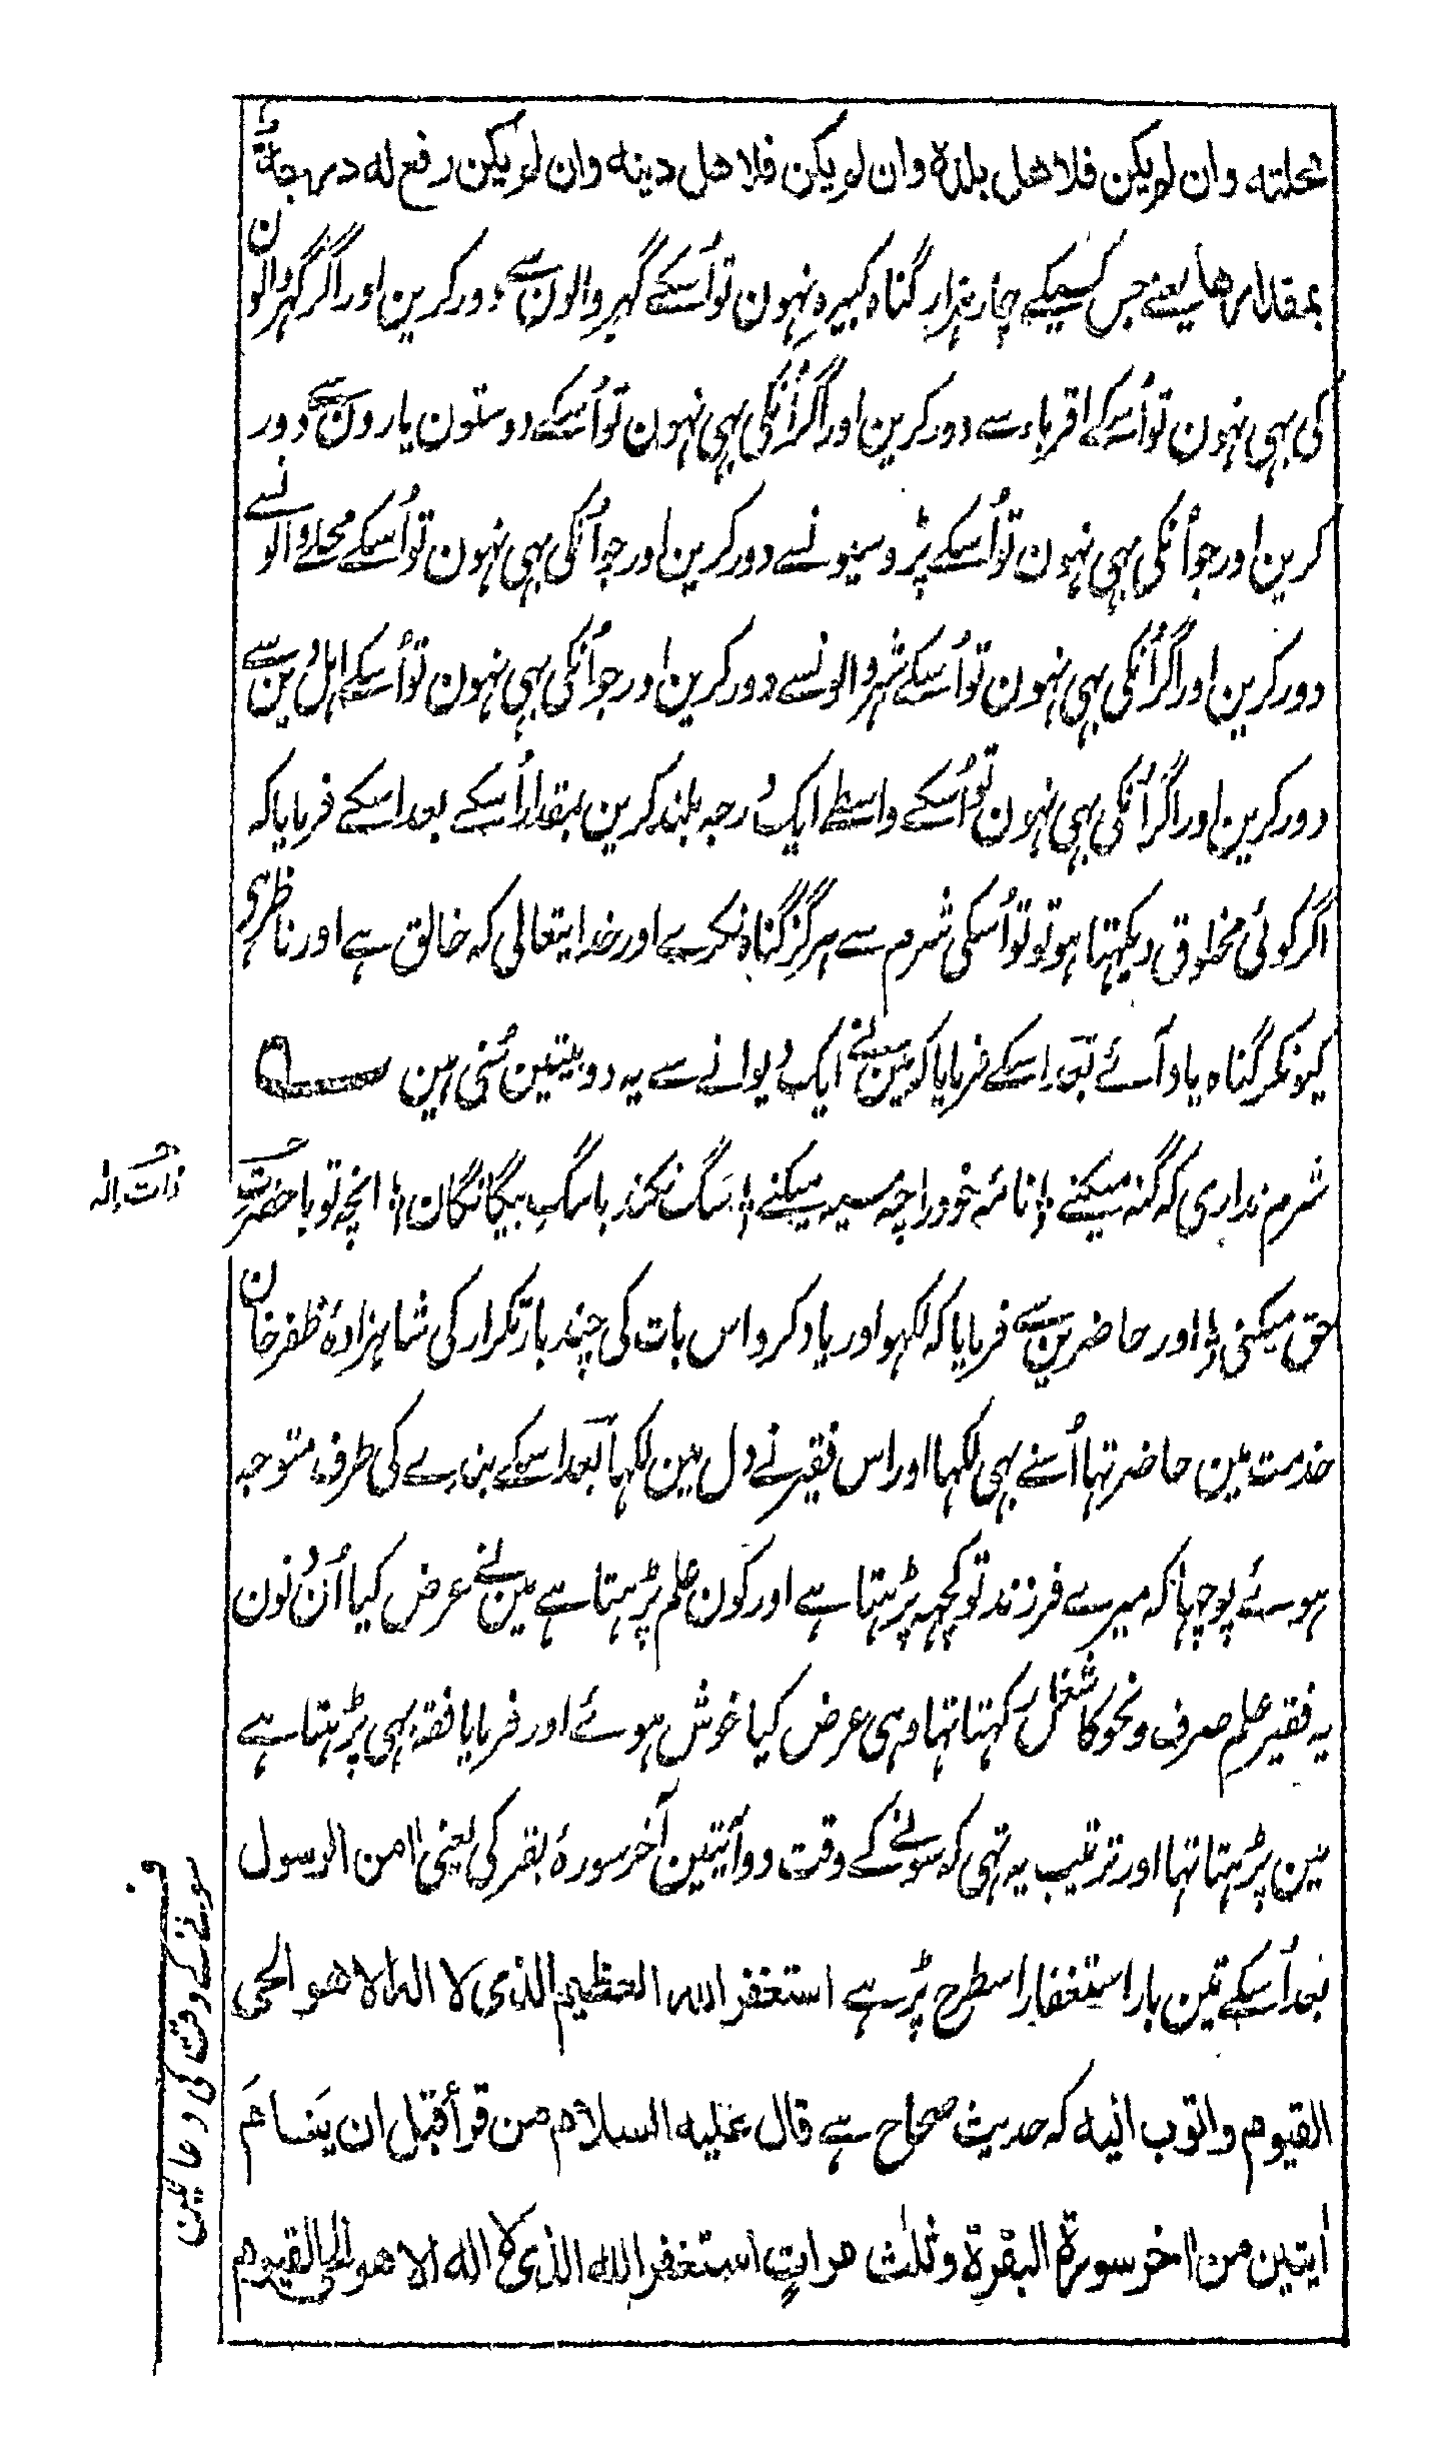 محلته وان لم یکن فلاهل بلدة وان لم یکن فلاهل دینه وان لم یکن رفع له درجة
بمقدارها یعنے جس کسیکے چار ہزار گناہ کبیرہ نہون تو اُسکے گہر والون سے دور کرین اور اگر گہر والون
کی بہی نہون تو اُسکے اقرباء سے دور کرین اور اگر اُنکی بہی نہون تو اُسکے دوستون یارون سے دور
کرین اور جو اُنکی بہی نہون تو اُسکے پڑوسیونسے دور کرین اور جو اُنکی بہی نہون تو اُسکے محلے والونسے
دور کرین اور اگر اُنکی بہی نہون تو اُسکے شہر والونسے دور کرین اور جو اُنکی بہی نہون تو اُسکے اہل دین سے
دور کرین اور اگر اُنکی بہی نہون تو اُسکے واسطے ایک درجہ بلند کرین بمقدار اُسکے بعد اسکے فرمایا کہ
اگر کوئی مخلوق دیکہتا ہو تو تو اُسکی شرم سے ہرگز گناہ نکرے اور خدایتعالی کہ خالق ہے اور ناظر ہی
کیونکر گناہ یاد آئے بعد اسکے فرمایا کہ مین نے ایک دیوانے سے یہ دو بیتین سُنی ہین
شرم نداری کہ گنہ میکنے نامۂ خود را چہ سیہ میکنے سگ نکند باسگ بیگانگان انچہ تو با حضرتِ
حق میکنی اور حاضرین سے فرمایا کہ لکہو اور یاد کرو اس بات کی چند بار تکرار کی شاہزادۂ ظفر خان
خدمت مین حاضر تہا اُسنے بہی لکہا اور اس فقیر نے دل مین لکہا بعد اسکے بندے کی طرف متوجہ
ہوئے پوچہا کہ میرے فرزند تو کچہہ پڑہتا ہے اور کون علم پڑہتا ہے مین نے عرض کیا اُن دنون
یہ فقیر علم صرف و نحو کا شغل رکہتا تہا وہی عرض کیا خوش ہوئے اور فرمایا فقہ بہی پڑہتا ہے
مین پڑہتا تہا اور ترتیب یہ تہی کہ سونے کے وقت دو آیتین آخر سورۂ بقر کی یعنی اٰمن الرسول
بعد اُسکے تین بار استغفار اسطرح پڑہے استغفر الله العظیم الذی لا اله الا هو الحی
القیوم واتوب الیه کہ حدیث صحاح ہے قال علیه السلام من قرأ قبل ان ینام
اٰیتین من اٰخر سورة البقرة وثلٰث مرات استغفر الله الذی لا اله الا هو الحی القیوم
سونے کے وقت کی دعائین